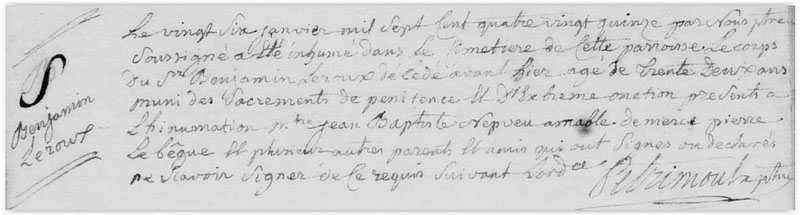 S
Benjamin
Leroux
Le vingt Six janvier mil Sept Cent quatre vingt quinze par Nous ptre
Soussigné a été inhumé dans le Cimetiere de Cette paroisse Le corps
du Sr Benjamin Leroux décédé avant hier agé de trente Deux ans
muni des Sacrements de penitence et D'Extreme onction presents a
L'hinumation jean Baptiste Nepveu amable demerce pierre
Le bégue Et plusieur autres parents Et amis qui ont Signes ou declarés
ne Scavoir Signer de Ce requis Suivant Lordce
Petrimoulx ptre